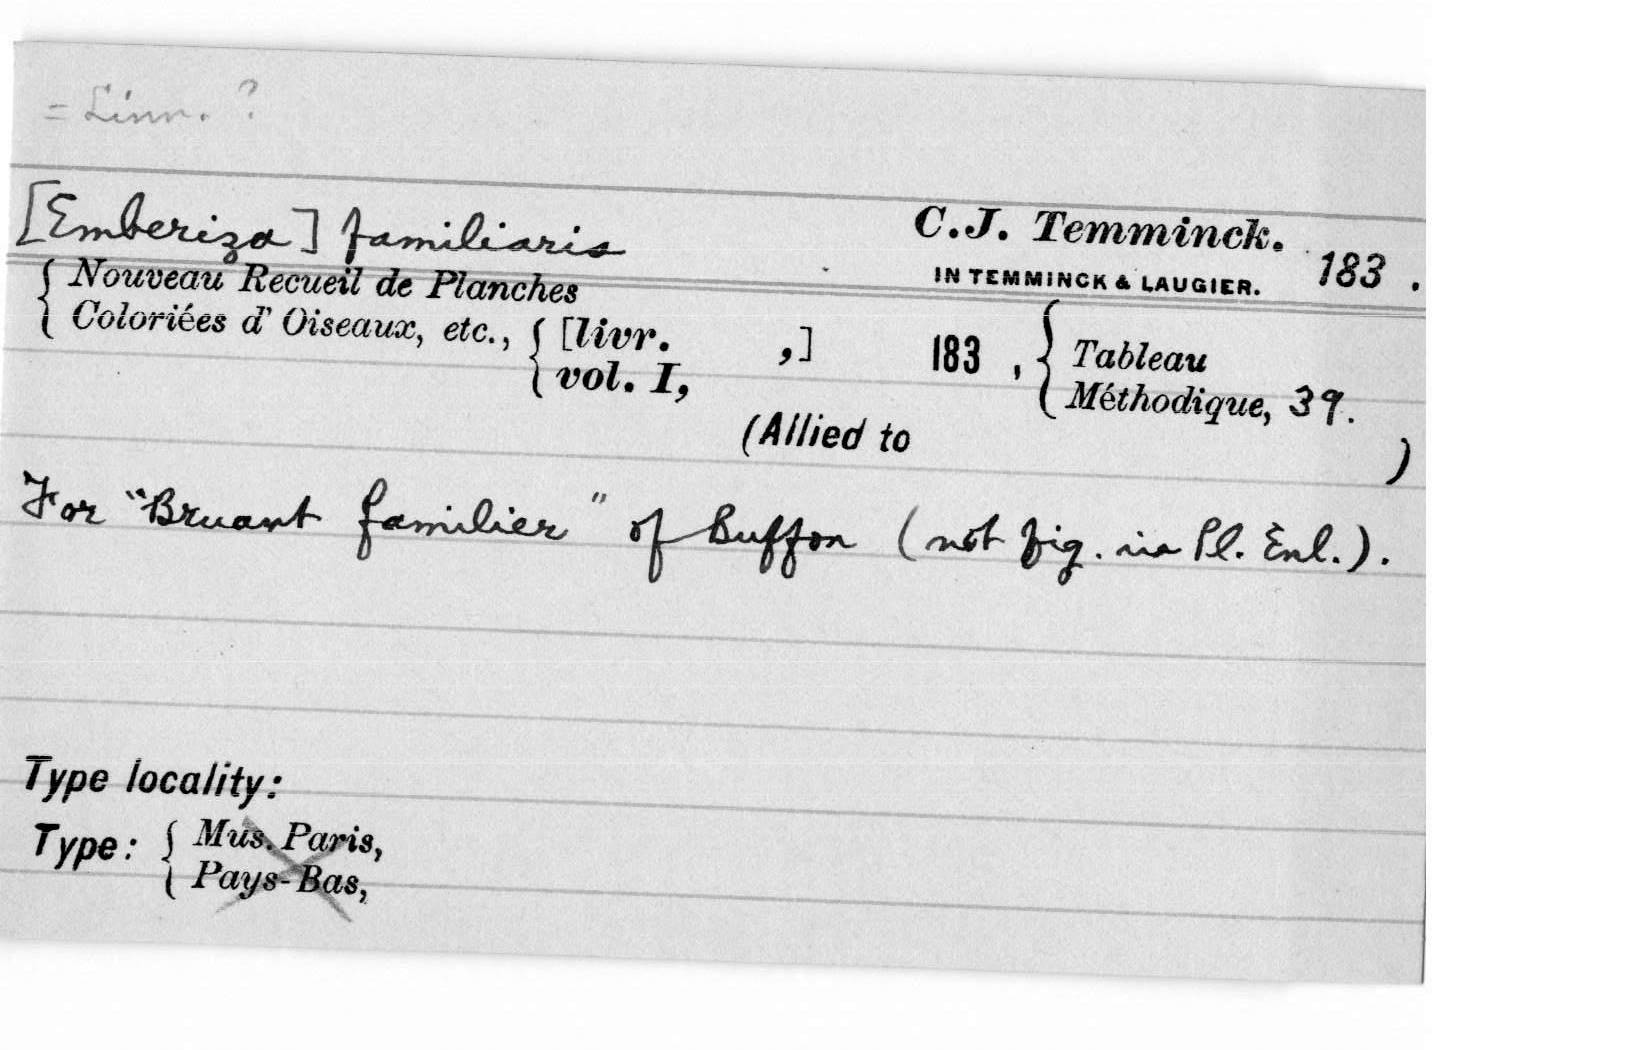 = Linn. ?
[Emberiza] familiaris C.J. Temminck.
IN TEMMINCK & LAUGIER. 183 .
Nouveau Recueil de Planches
Coloriées d' Oiseaux, etc., [livr. ,] 183 , Tableau
vol. I, Méthodique, 39.
(Allied to )
For "Bruant familier" of Buffon (not fig. in Pl. Enl.).
Type locality:
Type: Mus. Paris,
Pays-Bas,